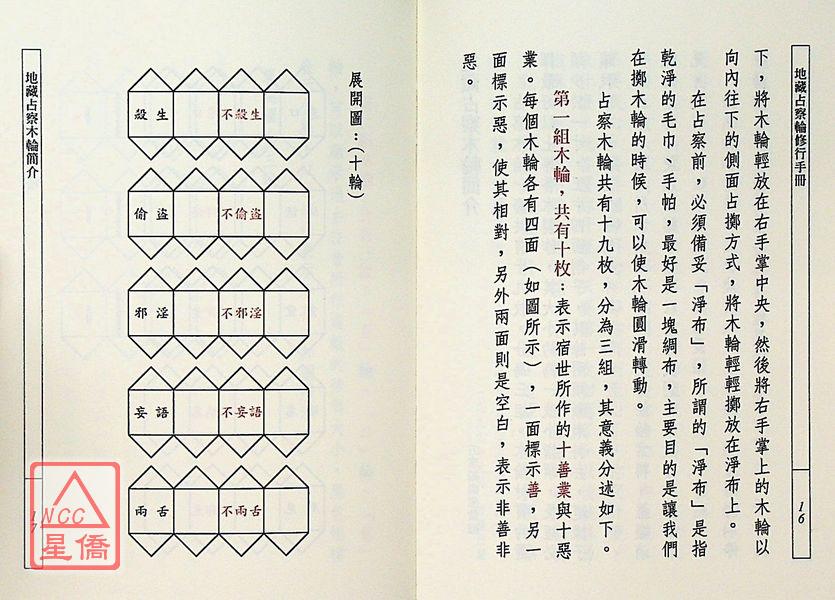 地藏占察輪修行手冊
16
下，將木輪輕放在右手掌中央，然後將右手掌上的木輪以
向內往下的側面占擲方式，將木輪輕輕擲放在淨布上。
在占察前，必須備妥「淨布」，所謂的「淨布」是指
乾淨的毛巾、手帕，最好是一塊綢布，主要目的是讓我們
在擲木輪的時候，可以使木輪圓滑轉動。
占察木輪共有十九枚，分為三組，其意義分述如下。
第一組木輪，共有十枚：表示宿世所作的十善業與十惡
業。每個木輪各有四面（如圖所示），一面標示善，另一
面標示惡，使其相對，另外兩面則是空白，表示非善非
惡。
展開圖：（十輪）
殺生 不殺生
偷盜 不偷盜
邪淫 不邪淫
妄語 不妄語
兩舌 不兩舌
地藏占察木輪簡介
17
NCC
星僑